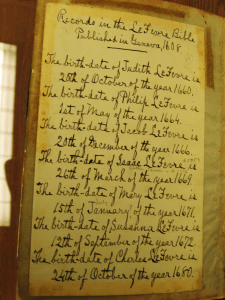 Records in the LeFevre Bible
Published in Geneva, 1608
The birth-date of Judith LeFevre is
28th of October of the year 1660.
The birth-date of Philip LeFevre is
1st of May of the year 1664.
The birth-date of Jacob LeFevre is
20th of December of the year 1666.
The birth-date of Isaac LeFevre is
26th of March of the year 1669.
The birth-date of Mary LeFevre is
15th of January of the year 1671.
The birth-date of Susanna LeFevre is
12th of September of the year 1672.
The birth-date of Charles LeFevre is
24th of October of the year 1680.